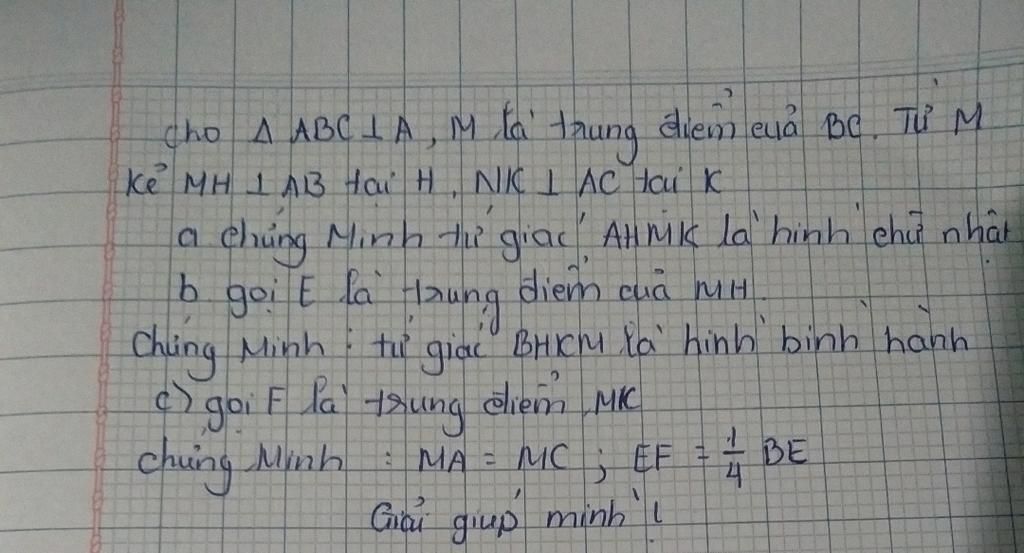 cho Δ ABC ⊥ A, M là trung điểm cuả BC. Từ M
Kẻ MH ⊥ AB tại H, NK ⊥ AC tại K
a chứng Minh tứ giác AHMK là hình chữ nhật
b. gọi E là trung điểm của MH.
Chứng Minh : tứ giác BHKM là hình bình hành
c) gọi F là trung điểm MK
chứng Minh : MA = MC ; EF = 1/4 BE
Giải giúp mình !